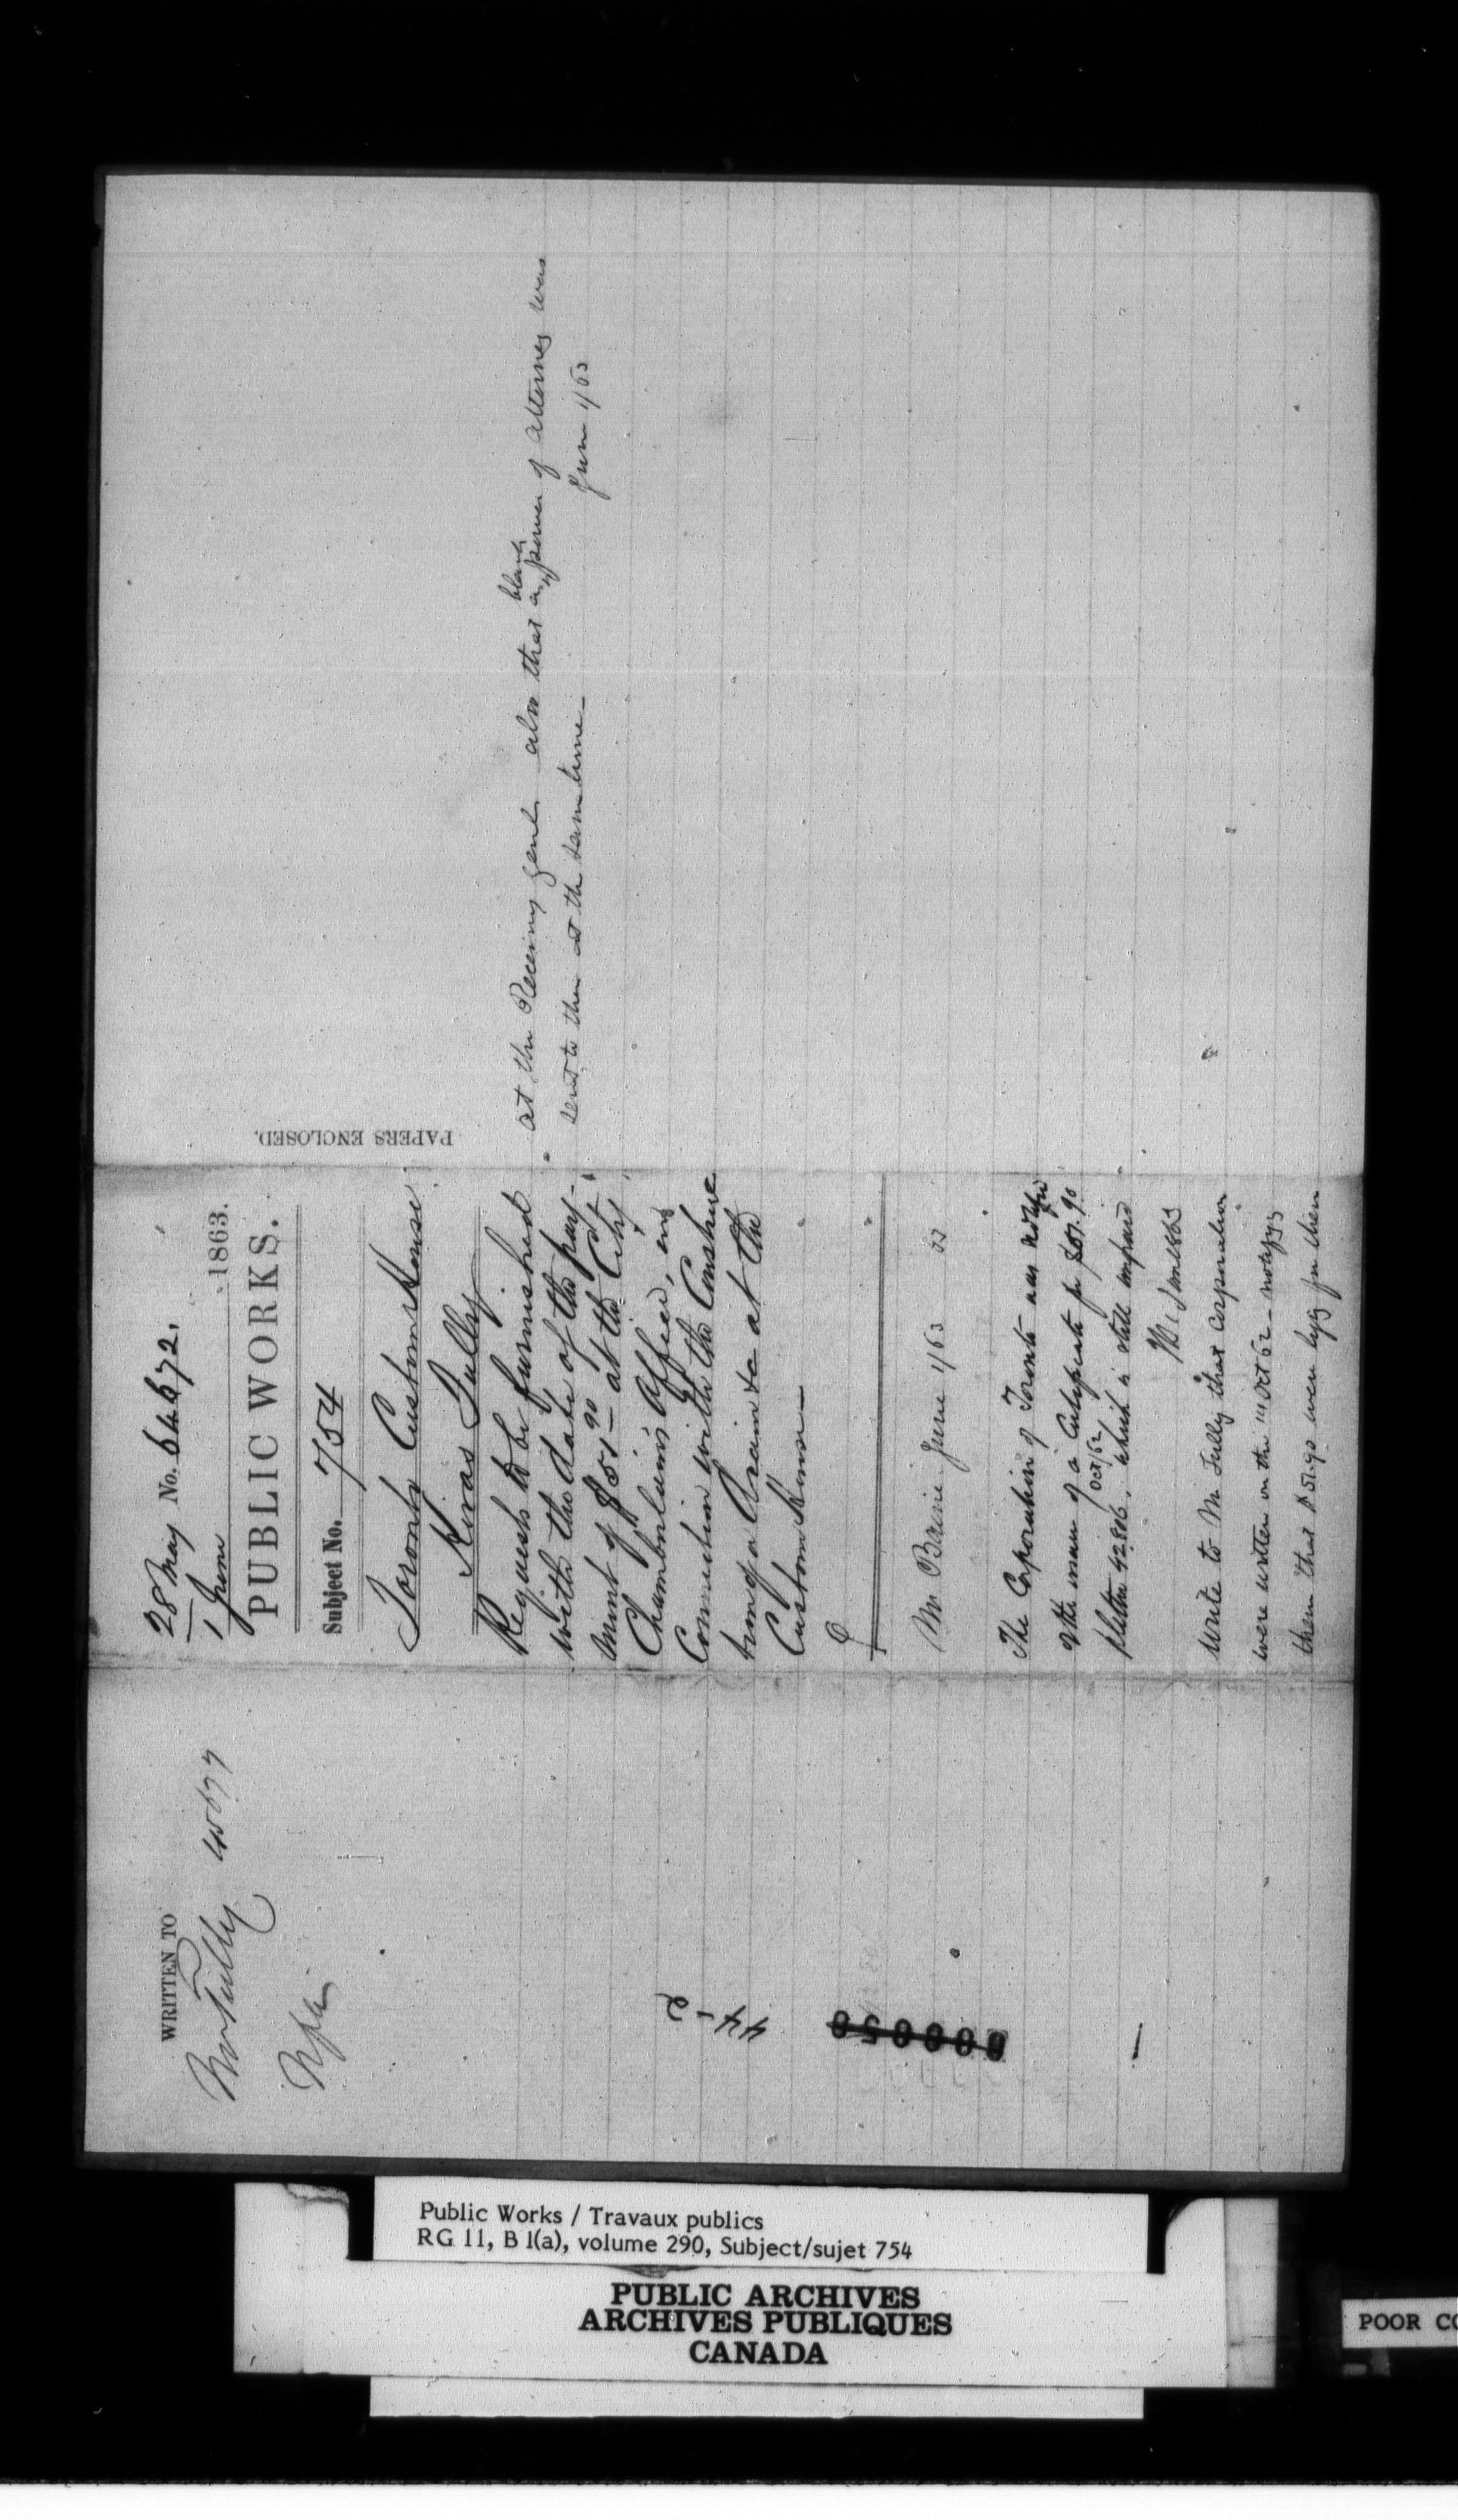 28 May No. 64672.
1 June 1863.
PUBLIC WORKS.
Subject No. 754
Toronto Custom House
Kivas Tully
Requests to be furnished
with the date of the pay-
ment of $51.90 at the City
Chamberlain's Office, in
Connection with the Construc
tion of a drain &c at the
Custom House—
Mr Baine June 1/63
The Corporation of Toronto was notified
of the issue of a Certificate for $51.90
p letter 42806, Oct/62 which is still unpaid
1 June 1863
Write to Mr Tully that Corporation
were written on the Oct 62 — notifyg
them that $51.90 were lyg for them
at the Receiving Genl. also that a blank power of Attorney was
sent to them at the same time—
June 1/63
PAPERS ENCLOSED.
WRITTEN TO
Mr Tully
44-2
Public Works / Travaux publics
RG 11, B 1(a), volume 290, Subject/sujet 754
PUBLIC ARCHIVES
ARCHIVES PUBLIQUES
CANADA
POOR CO